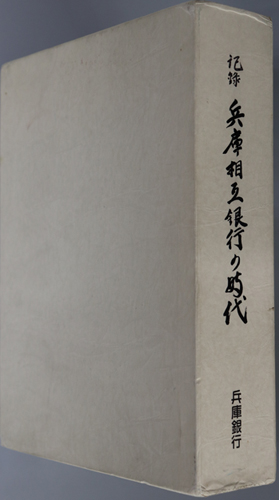 記録
兵庫相互銀行の時代
兵庫銀行